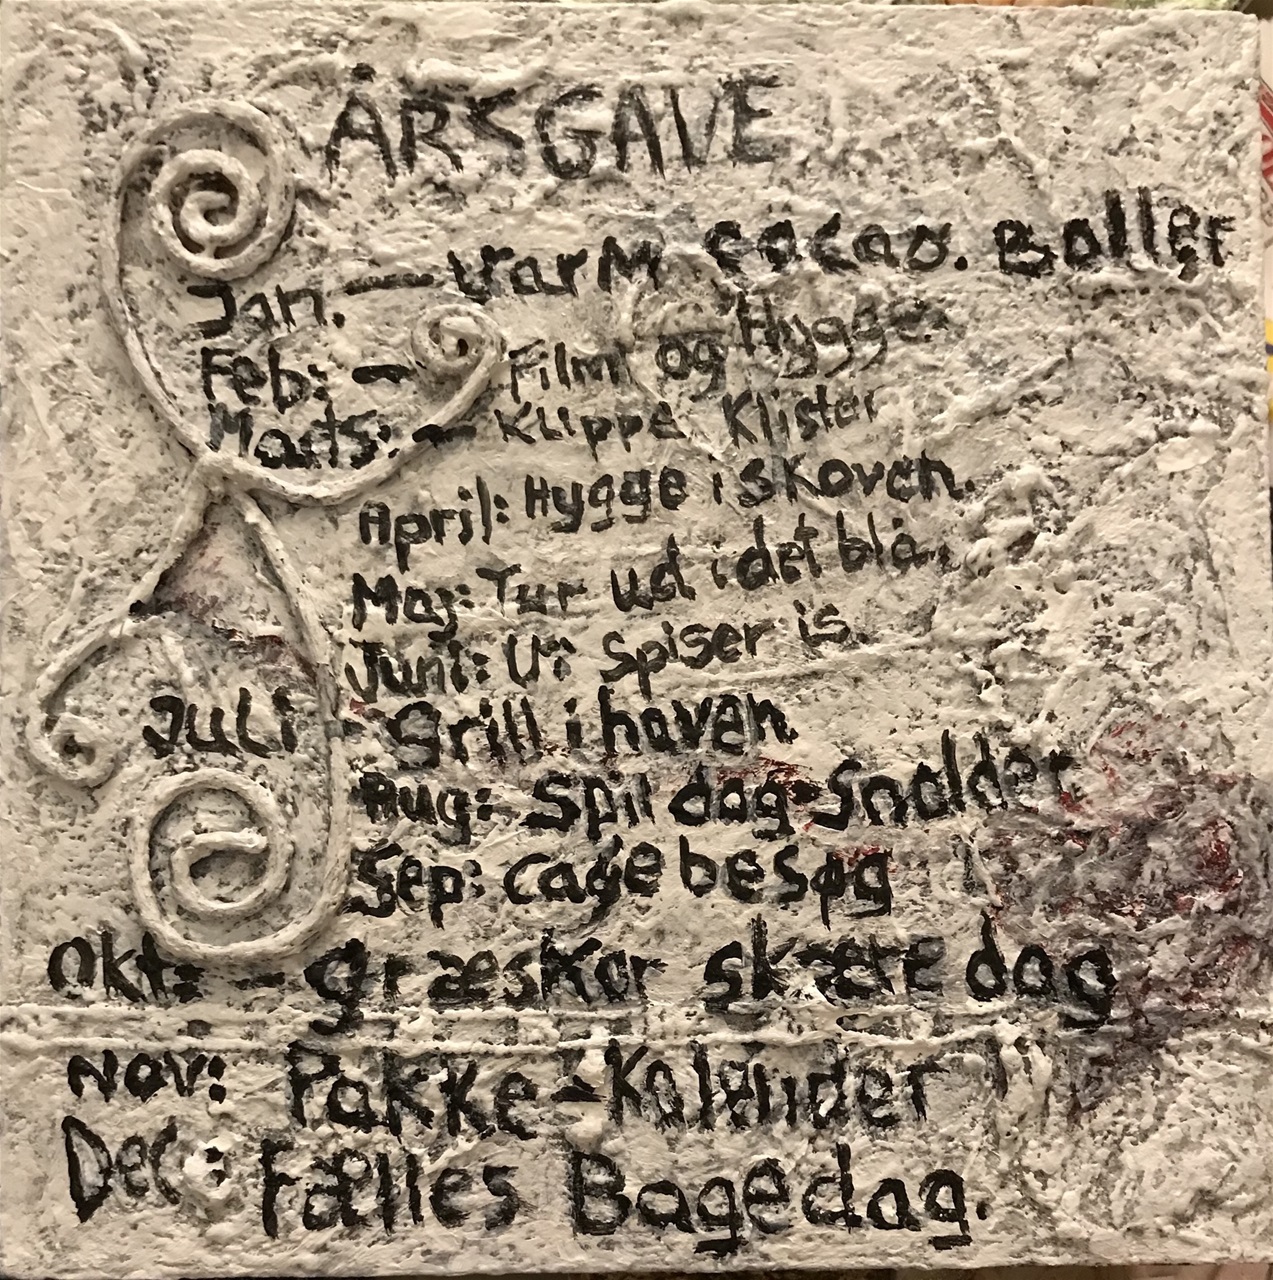 ÅRSGAVE
Jan. — Varm cacao. Boller
Feb: - Film og Hygge.
Mats: - Klippe Klister
April: Hygge i skoven.
Maj: Tur ud i det blå.
Juni: Vi spiser is.
JULI - Grill i haven.
Aug: Spil dag - Snolder
Sep: cage besøg
Okt: - græskar skære dag
Nov: Pakke-Kalender
Dec: Fælles Bagedag.